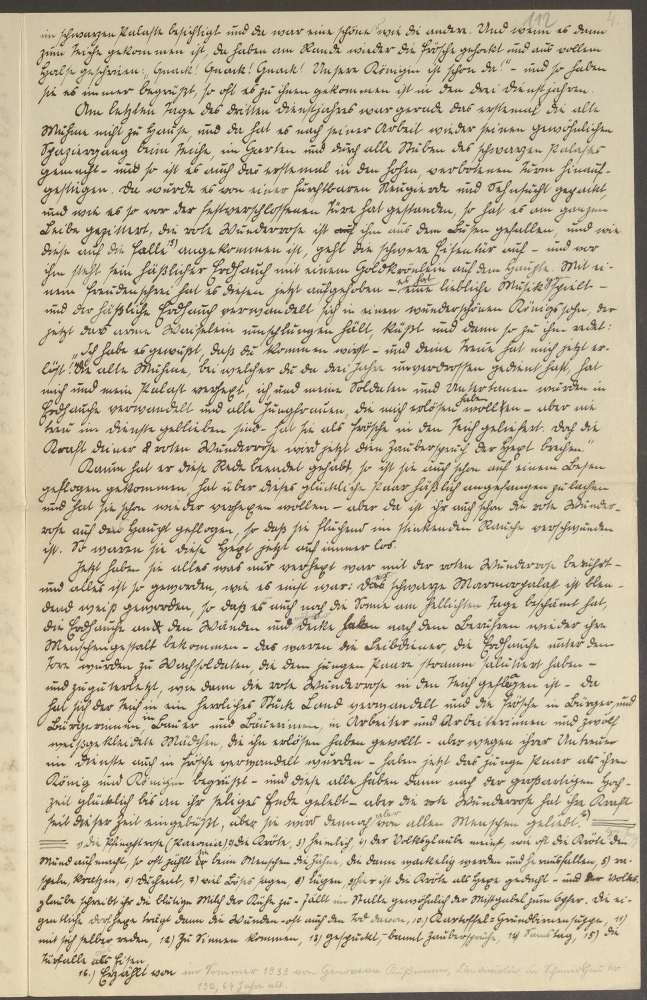 112 4.
im schwarzen Palaste besichtigt und da war eine schöne wie die andere. Und wenn es dann
zum Teiche gekommen ist, da haben am Rande wieder die Frösche gehockt und aus vollem
Halse geschrieen: „Quack! Quack! Quack! Unsere Königin ist schon da!" – und so haben
sie es immer begrüßt, so oft es zu ihnen gekommen ist in den drei Dienstjahren.
Am letzten Tage des dritten Dienstjahres war gerade das erstemal die alte
Muhme nicht zu Hause, und da hat es nach seiner Arbeit wieder seinen gewöhnlichen
Spaziergang beim Teiche, im Garten und durch alle Stuben des schwarzen Palastes
gemacht – und so ist es auch das erstemal in den hohen, verbotenen Turm hinauf-
gestiegen. Da wurde es von einer furchtbaren Neugierde und Sehnsucht gepackt,
und wie es so vor der festverschlossenen Türe hat gestanden, so hat es am ganzen
Leibe gezittert, die rote Wunderrose ist ihm aus dem Busen gefallen, und wie
diese auf die Falle 15) angekommen ist, geht die schwere Eisentür auf – und vor
ihm steht sein häßlicher Hodschauch mit einem Goldkrönlein auf dem Haupte. Mit ei-
nem Freudenschrei hat es diesen jetzt aufgehoben – eine liebliche Musik hat gespielt –
und der häßliche Hodschauch verwandelt sich in einen wunderschönen Königssohn, der
jetzt das arme Waiselein umschlungen hält, küßt und dann so zu ihm redet:
„Ich habe es gewußt, daß du kommen wirst – und deine Treue hat mich jetzt er-
löst! Die alte Muhme, bei welcher du da drei Jahre unverdrossen gedient hast, hat
mich und mein Palast verhext, ich und meine Soldaten und Untertanen wurden in
verwandelt und alle Jungfrauen, die mich erlösen haben wollen – aber nie
treu im Dienste geblieben sind – hat sie als Frösche in den Teich geliefert. Doch die
Kraft deiner roten Wunderrose wird jetzt den Zauberspruch der Hexe brechen."
Kaum hat er diese Rede beendet gehabt, so ist sie auch schon auf einem Besen
geflogen gekommen, hat über dieses glückliche Paar häßlich angefangen zu lachen
und hat sie schon wieder verhexen wollen – aber da ist ihr auch schon die rote Wunder-
rose auf den Haupt geflogen, so daß sie fluchend im stinkenden Rauche verschwunden
ist. So waren sie diese Hexe jetzt auf immer los.
Jetzt haben sie alles was nur verhext war mit der roten Wunderrose berührt –
und alles ist so geworden, wie es einst war: Das schwarze Marmorpalast ist blen-
dend weiß geworden, so daß es auch noch die Sonne am hellichten Tage beschämt hat,
die an den Wänden und Decke haben nach dem Berühren wieder ihre
Menschengestalt bekommen – das waren die Leibdiener, die unter dem
Tore wurden zu Wachsoldaten, die dem jungen Paare stramm salutiert haben –
und zuguterletzt, wie dann die rote Wunderrose in den Teich geflogen ist – da
hat sich der Teich in ein herrliches Stück Land verwandelt und die Frösche in Bürger und
Bürgerinnen, in Bauer und Bäuerinnen, in Arbeiter und Arbeiterinnen und zwölf
weißgekleidete Mädchen, die ihn erlösen haben gewollt – aber wegen ihrer Untreue
im Dienste auch in Frösche verwandelt wurden – haben jetzt das junge Paar als ihren
König und Königin begrüßt – und diese alle haben dann nach der großartigen Hoch-
zeit glücklich bis an ihr seliges Ende gelebt – aber die rote Wunderrose hat ihre Kraft
seit dieser Zeit eingebüßt, aber sie wird dennoch von allen Menschen geliebt. 16)
1) die Pfingstrose (Paeonia) 2) die Kröte, 3) heimlich, 4) der Volksglaube meint, wie oft die Kröte den
Mund aufmacht, so oft zählt sie beim Menschen die Zähne, die dann wackelig werden und herausfallen, 5) ra-
speln, kratzen, 6) 7) viel Böses sagen, 8) lügen, 9) hier ist die Kröte als Hexe gedacht – und der Volks-
glaube schreibt ihr die blutige Milch der Kühe zu – fällt im Stalle gewöhnlich der Mistgabel zum Opfer. Die ei-
gentliche Dorfhexe trägt dann die Wunden – oft auch den Tod davon, 10) Kartoffel = Grundbirnensuppe, 11)
mit sich selber reden, 12) zu Sinnen kommen, 13) gespuckt, – bannt Zaubersprüche, 14) Samstag, 15) die
Türfalle als Eisen
16.) Erzählt von im Sommer 1932 von Genoveva
130, 64 Jahre alt.